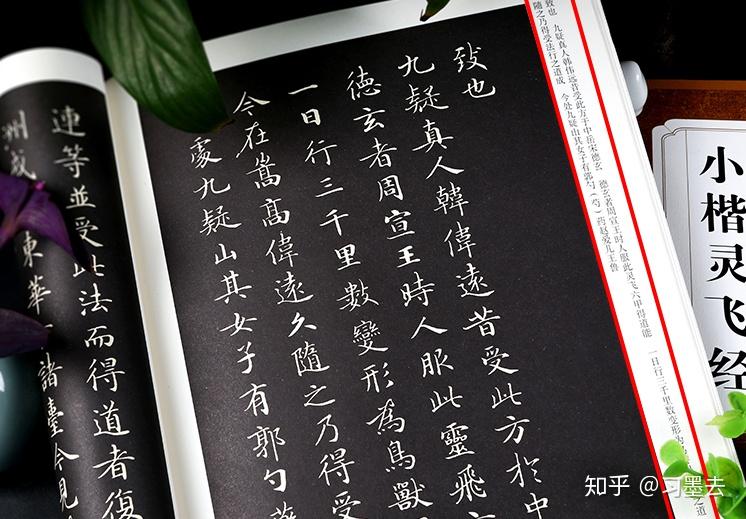 致也
九疑真人韓偉遠昔受此方於中
德玄者周宣王時人服此靈飛六
一日行三千里數變形為鳥獸
今在嵩高偉遠久隨之乃得受
處九疑山其女子有郭勺藥
連等並受此法而得道者復
洲或
東華
諸臺今見
致也 九疑真人韩伟远昔受此方于中岳宋德玄 德玄者周宣王时人服此灵飞六甲得道能 一日行三千里数变形为
随之乃得受法行之道成 今处九疑山其女子有郭勺（芍）药赵爱儿王鲁
之道
小楷灵飞经
知乎 @习墨去